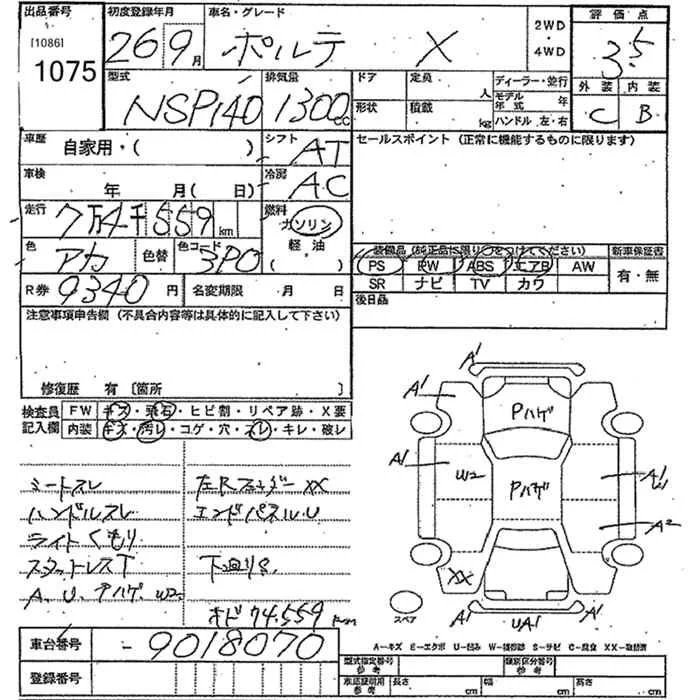 出品番号 初度登録年月 車名・グレード 2WD ・ 4WD 評価点
[1086]
1075 26 9月 ポルテ X 3.5
型式 排気量 ドア 定員 人 ディーラー・並行
モデル年式 年
形状 積載 kg ハンドル 左・右
NSP140 1300cc
外装 内装
C B
車歴 自家用・( ) シフト AT
セールスポイント (正常に機能するものに限ります)
車検 年 月(日) 冷房 AC
走行 7万4千559km 燃料 ガソリン
軽油
( )
色 アカ 色替 色コード 3P0
装備品 (純正品に限り○をつけてください) 新車保証書
PS PW ABS エアB AW 有・無
SR ナビ TV カワ
R券 9340円 名変期限 月 日
後日品
注意事項申告欄 (不具合内容等は具体的に記入して下さい)
修復歴 有 〔箇所 〕
検査員記入欄 FW キズ・飛石・ヒビ割・リペア跡・X要
内装 キズ・汚レ・コゲ・穴・スレ・キレ・破レ
シートスレ 左Rフェンダー XX
ハンドルスレ エンドパネル.U
ライトくもり
スタットレスT 下廻りS
A、U、Pハゲ、W2
オド 74.559km
A1
A1 Pハゲ A1
A1 W2 Pハゲ A1
A2
XX
スペア A1 UA1 A1
A-キズ E-エクボ U-凹み W-補修跡 S-サビ C-腐食 XX-取替済
車台番号 -9018070
型式指定番号 参考 類別区分番号 参考
登録番号
車庫証明用 参考 長さ cm 幅 cm 高さ cm